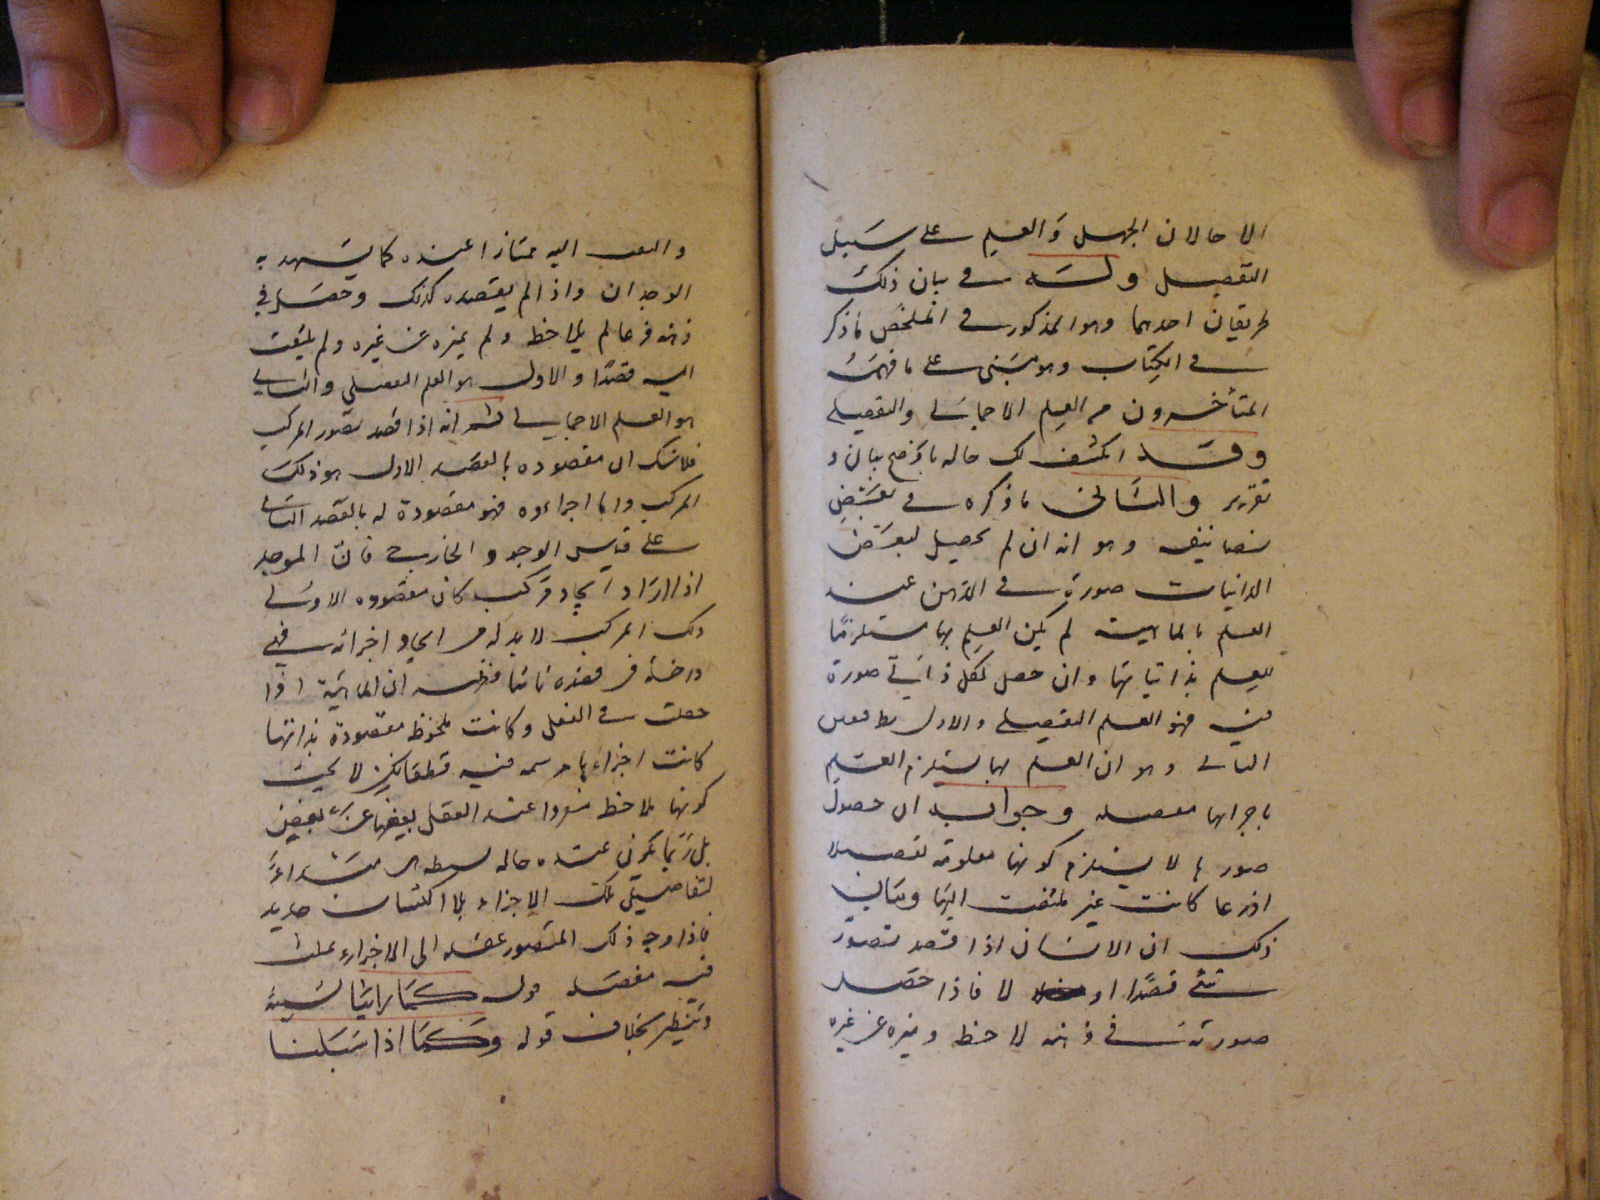 الا حالان الجهل والعلم على سبيل
التفصيل وله في بيان ذلك
طريقان احدهما وهو المذكور في الملخص ما ذكر
في الكتاب وهو مبنى على ما فهمه
المتأخرون من العلم الاجمالي والتفصيلي
وقد انكشف لك حاله باوضح بيان و
تقرير والثاني ما ذكره في بعض
تصانيفه وهو انه ان لم يحصل لبعض
الذاتيات صورة في الذهن عند
العلم بالماهية لم يكن العلم بها مستلزما
للعلم بذاتياتها وان حصل لكل ذاتي صورة
فيه فهو العلم التفصيلي والاول
الثاني وهو ان العلم بها يستلزم العلم
باجزائها مفصلة وجوابه ان حصول
صورها لا يستلزم كونها معلومة تفصيلا
اذ ربما كانت غير ملتفت اليها وبيان
ذلك ان الانسان اذا قصد تصور
شئ قصدا او لا فاذا حصل
صورته في ذهنه لاحظه وميزه عن غيره
والتفت اليه ممتازا عنده كما يشهد به
الوجدان واذا لم يقصده كذلك وحصل في
ذهنه فربما لم يلاحظ ولم يميزه عن غيره ولم يلتفت
اليه قصدا والاول هو العلم التفصيلي والثاني
هو العلم الاجمالي ثم انه اذا قصد تصور المركب
فلا شك ان مقصوده بالقصد الاول هو ذلك
المركب واما اجزاءه فهو مقصودة له بالقصد الثاني
على قياس الوجود الخارجي فان الموجد
اذا اراد ايجاد مركب كان مقصوده الاولى
ذلك المركب لا بد له من ايجاد اجزائه فهي
داخلة في قصده ثانيا فظهر ان الماهية اذا
حصلت في العقل وكانت ملحوظة مقصودة بذاتها
كانت اجزاءها مرتسمة فيه قطعا لكن لا يجب
كونها ملاحظة عند العقل بعضها عن بعض
بل ربما يكون عنده حالة بسيطة هي مبداء
لتفاصيل تلك الاجزاء بلا اكتساب جديد
فاذا وجه ذلك المتصور عقله الى الاجزاء
فيه مفصلة قوله كما رأينا شيئا
وتنظر بخلاف قوله وكما اذا سئلنا